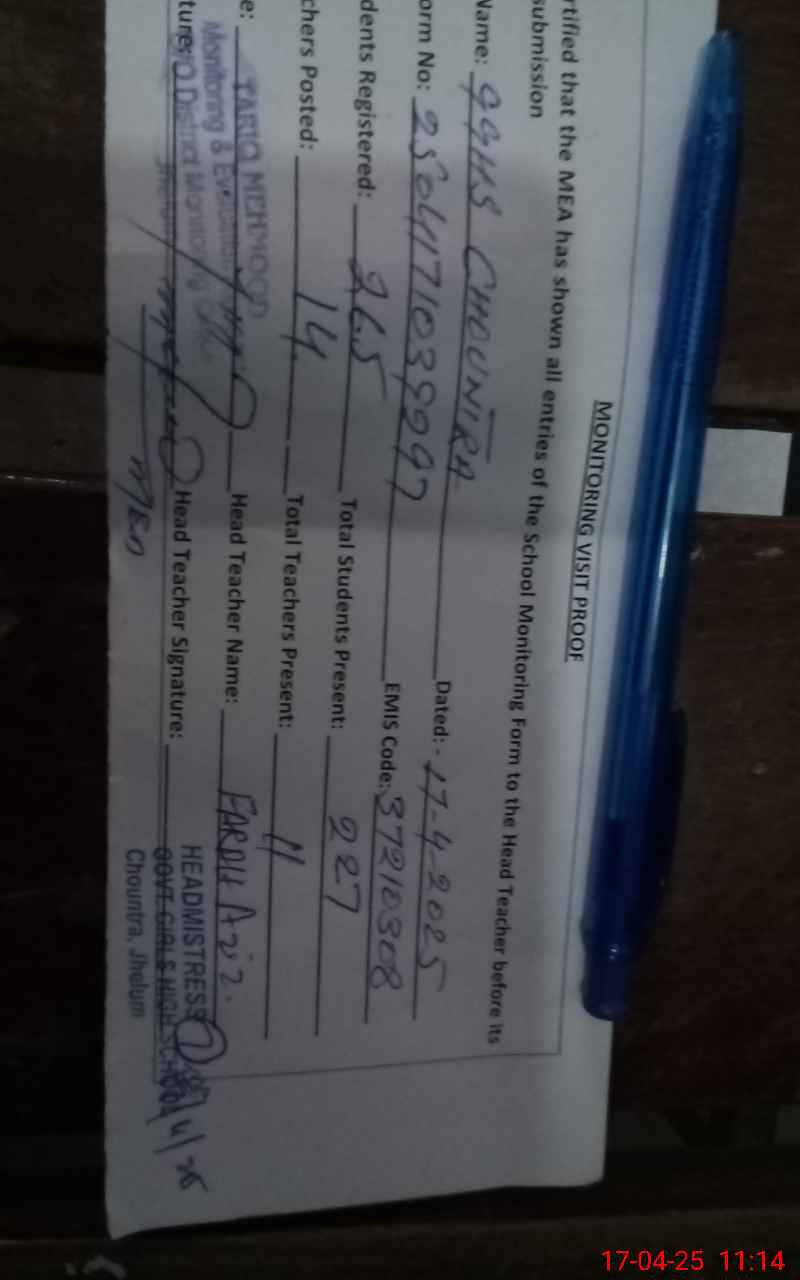 MONITORING VISIT PROOF
rtified that the MEA has shown all entries of the School Monitoring Form to the Head Teacher before its
submission
Name: GGHS CHOUNTRA Dated:- 17-4-2025
orm No: EMIS Code: 37210308
dents Registered: 265 Total Students Present: 227
chers Posted: 14 Total Teachers Present: 11
e: TARIQ MEHMOOD Head Teacher Name:
Monitoring & Evaluation
ture: District Monitoring Head Teacher Signature:
Jhelum
HEADMISTRESS
GOVT. GIRLS HIGH SCHOOL
Chountra, Jhelum
17-04-25 11:14